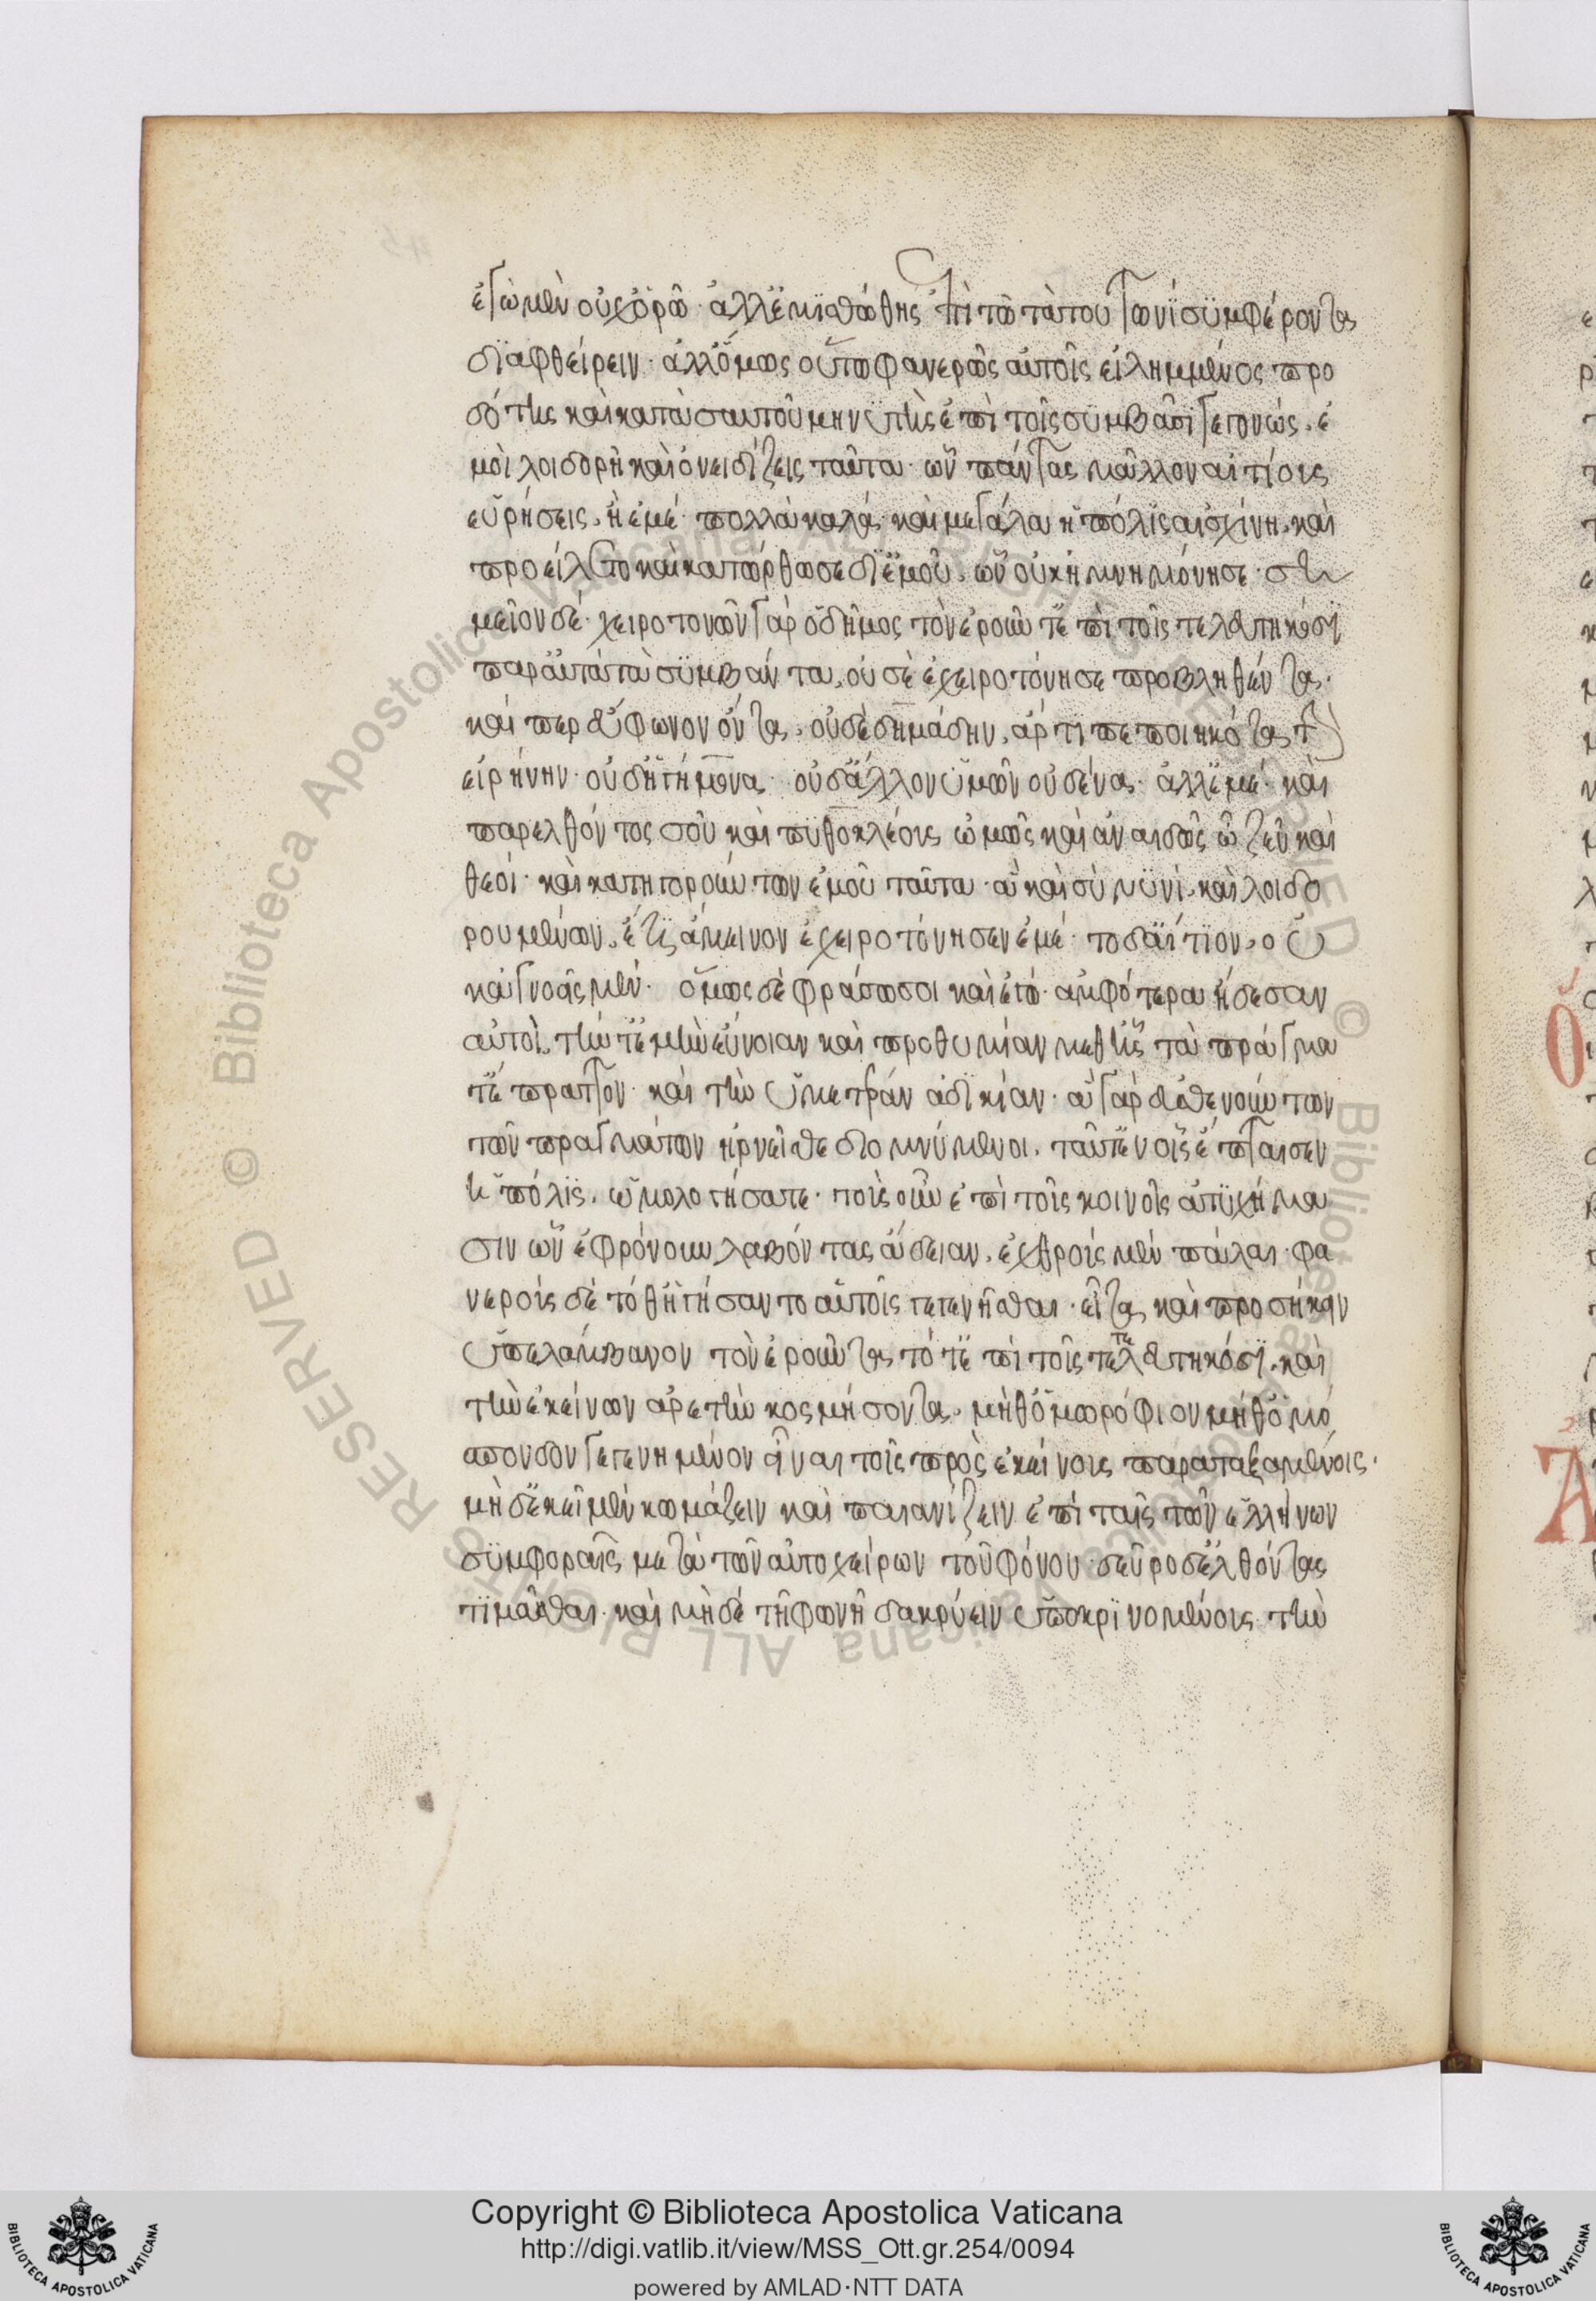 ἐγὼ μὲν οὐχ ὁρῶ· ἀλλ' ἐμισθώθης ἐπὶ τῶ τὰ τουτωνῒ συμφέροντα
διαφθείρειν· ἀλλ' ὅμως οὕτω φανερῶς αὐτοῖς εἰλημμένος προ
δότης καὶ κατὰ σαυτοῦ μηνυτὴς ἐπὶ τοῖς συμβᾶσι γεγονώς, ἐ
μοὶ λοιδορῆ καὶ ὀνειδίζεις ταῦτα· ὧν πάντας μᾶλλον αἰτίους
εὑρήσεις, ἢ ἐμέ· πολλὰ καλὰ καὶ μεγάλα ἡ πόλις αἰσχίνη, καὶ
προείλετο καὶ κατώρθωσε δι' ἐμοῦ, ὧν οὐκ ἠμνημόνησε· ση
μεῖον δέ· χειροτονῶν γὰρ ὁ δῆμος τὸν ἐροῦντ' ἐπὶ τοῖς τετελευτηκόσι
παρ' αὐτὰ τὰ συμβάντα, οὐ σὲ ἐχειροτόνησε προβληθέντα·
καίπερ εὔφωνον ὄντα, οὐδὲ δημάδην, ἄρτι πεποιηκότα τὴν
εἰρήνην· οὐδ' ἡγήμονα· οὐδ' ἄλλον ὑμῶν οὐδένα· ἀλλ' ἐμέ· καὶ
παρελθόντος σοῦ καὶ πυθοκλέους ὠμῶς καὶ ἀναιδῶς ὦ ζεῦ καὶ
θεοί· καὶ κατηγορούντων ἐμοῦ ταῦτα ἃ καὶ σὺ νυνὶ, καὶ λοιδο
ρουμένων, ἔτ' ἄμεινον ἐχειροτόνησεν ἐμέ· τὸ δ' αἴτιον, οὐ
κ ἀγνοεῖς μέν· ὅμως δὲ φράσω σοι καὶ ἐγώ· ἀμφότερα ᾔδεσαν
αὐτοὶ, τήν τ' ἐμὴν εὔνοιαν καὶ προθυμίαν μεθ' ἧς τὰ πράγμα
τ' ἔπραττον· καὶ τὴν ὑμετέραν ἀδικίαν· ἃ γὰρ εὐθενούντων
τῶν πραγμάτων ἠρνεῖσθε διομνύμενοι, ταῦτ' ἐν οἷς ἔπταισεν
ἡ πόλις, ὡμολογήσατε· τοὺς οὖν ἐπὶ τοῖς κοινοῖς ἀτυχήμα
σιν ὧν ἐφρόνουν λαβόντας ἄδειαν, ἐχθροὺς μὲν πάλαι· φα
νεροὺς δὲ τόθ' ἡγήσαντο αὑτοῖς γεγενῆσθαι· εἶτα καὶ προσήκειν
ὑπελάμβανον τὸν ἐροῦντα τότ' ἐπὶ τοῖς τετελευτηκόσι, καὶ
τὴν ἐκείνων ἀρετὴν κοσμήσοντα, μήθ' ὁμωρόφιον μήθ' ὁμό
σπονδον γεγενημένον εἶναι τοῖς πρὸς ἐκείνους παραταξαμένοις·
μὴ δ' ἐκεῖ μὲν κωμάζειν καὶ παιανίζειν ἐπὶ ταῖς τῶν ἑλλήνων
συμφοραῖς μετὰ τῶν αὐτοχείρων τοῦ φόνου· δεῦρο δ' ἐλθόντας
τιμᾶσθαι· καὶ μὴ δὲ τῆ φωνῆ δακρύειν ὑποκρινομένους τὴν
Copyright © Biblioteca Apostolica Vaticana
http://digi.vatlib.it/view/MSS_Ott.gr.254/0094
powered by AMLAD·NTT DATA